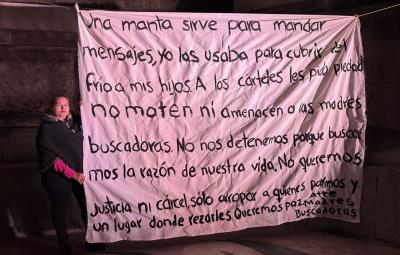 Una manta sirve para mandar
mensajes, yo las usaba para cubrir del
frío a mis hijos. A los cárteles les pido piedad
no maten ni amenacen a las madres
buscadoras. No nos detenemos porque busca
mos la razón de nuestra vida. No queremos
justicia ni cárcel, sólo arropar a quienes parimos y
un lugar donde rezarles Queremos paz
Atte
Madres
Buscadoras